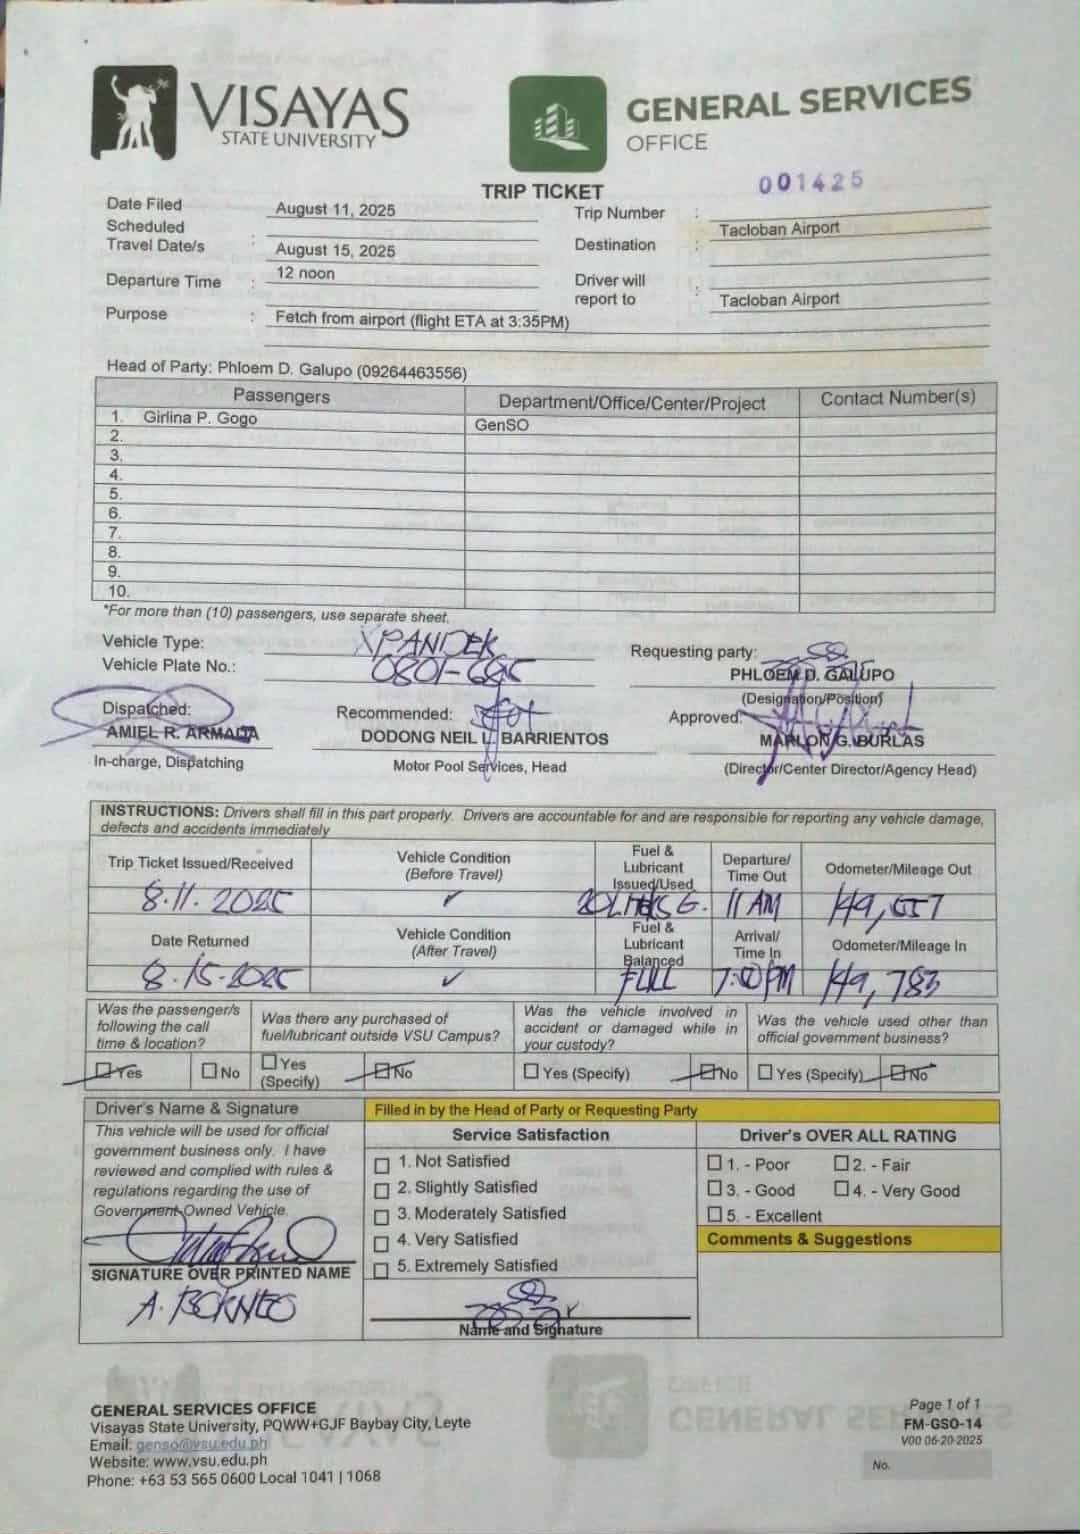 VISAYAS
STATE UNIVERSITY
GENERAL SERVICES
OFFICE
TRIP TICKET
001425
Date Filed August 11, 2025
Trip Number :
Scheduled
Travel Date/s : August 15, 2025
Destination : Tacloban Airport
Departure Time : 12 noon
Driver will
report to : Tacloban Airport
Purpose : Fetch from airport (flight ETA at 3:35PM)
Head of Party: Phloem D. Galupo (09264463556)
Passengers Department/Office/Center/Project Contact Number(s)
1. Girlina P. Gogo GenSO
2.
3.
4.
5.
6.
7.
8.
9.
10.
*For more than (10) passengers, use separate sheet.
Vehicle Type: XPANDER
Vehicle Plate No.: 0801-685
Requesting party:
PHLOEM D. GALUPO
(Designation/Position)
Dispatched:
AMIEL R. ARMADA
In-charge, Dispatching
Recommended:
DODONG NEIL L. BARRIENTOS
Motor Pool Services, Head
Approved:
MARLON G. BURLAS
(Director/Center Director/Agency Head)
INSTRUCTIONS: Drivers shall fill in this part properly. Drivers are accountable for and are responsible for reporting any vehicle damage,
defects and accidents immediately
Trip Ticket Issued/Received Vehicle Condition (Before Travel) Fuel & Lubricant Issued/Used Departure/ Time Out Odometer/Mileage Out
8.11.2025 ✓ 20 Liters G. 11 AM
Date Returned Vehicle Condition (After Travel) Fuel & Lubricant Balanced Arrival/ Time In Odometer/Mileage In
8.15-2025 ✓ FULL 7:00 PM 149,783
Was the passenger/s
following the call
time & location?
Was there any purchased of
fuel/lubricant outside VSU Campus?
Was the vehicle involved in
accident or damaged while in
your custody?
Was the vehicle used other than
official government business?
Yes No Yes (Specify) No Yes (Specify) No Yes (Specify) No
Driver's Name & Signature
This vehicle will be used for official
government business only. I have
reviewed and complied with rules &
regulations regarding the use of
Government-Owned Vehicle.
SIGNATURE OVER PRINTED NAME
A. BORNEO
Filled in by the Head of Party or Requesting Party
Service Satisfaction
1. Not Satisfied
2. Slightly Satisfied
3. Moderately Satisfied
4. Very Satisfied
5. Extremely Satisfied
Name and Signature
Driver's OVER ALL RATING
1. - Poor 2. - Fair
3. - Good 4. - Very Good
5. - Excellent
Comments & Suggestions
GENERAL SERVICES OFFICE
Visayas State University, PQWW+GJF Baybay City, Leyte
Email: genso@vsu.edu.ph
Website: www.vsu.edu.ph
Phone: +63 53 565 0600 Local 1041 | 1068
Page 1 of 1
FM-GSO-14
V00 06-20-2025
No.